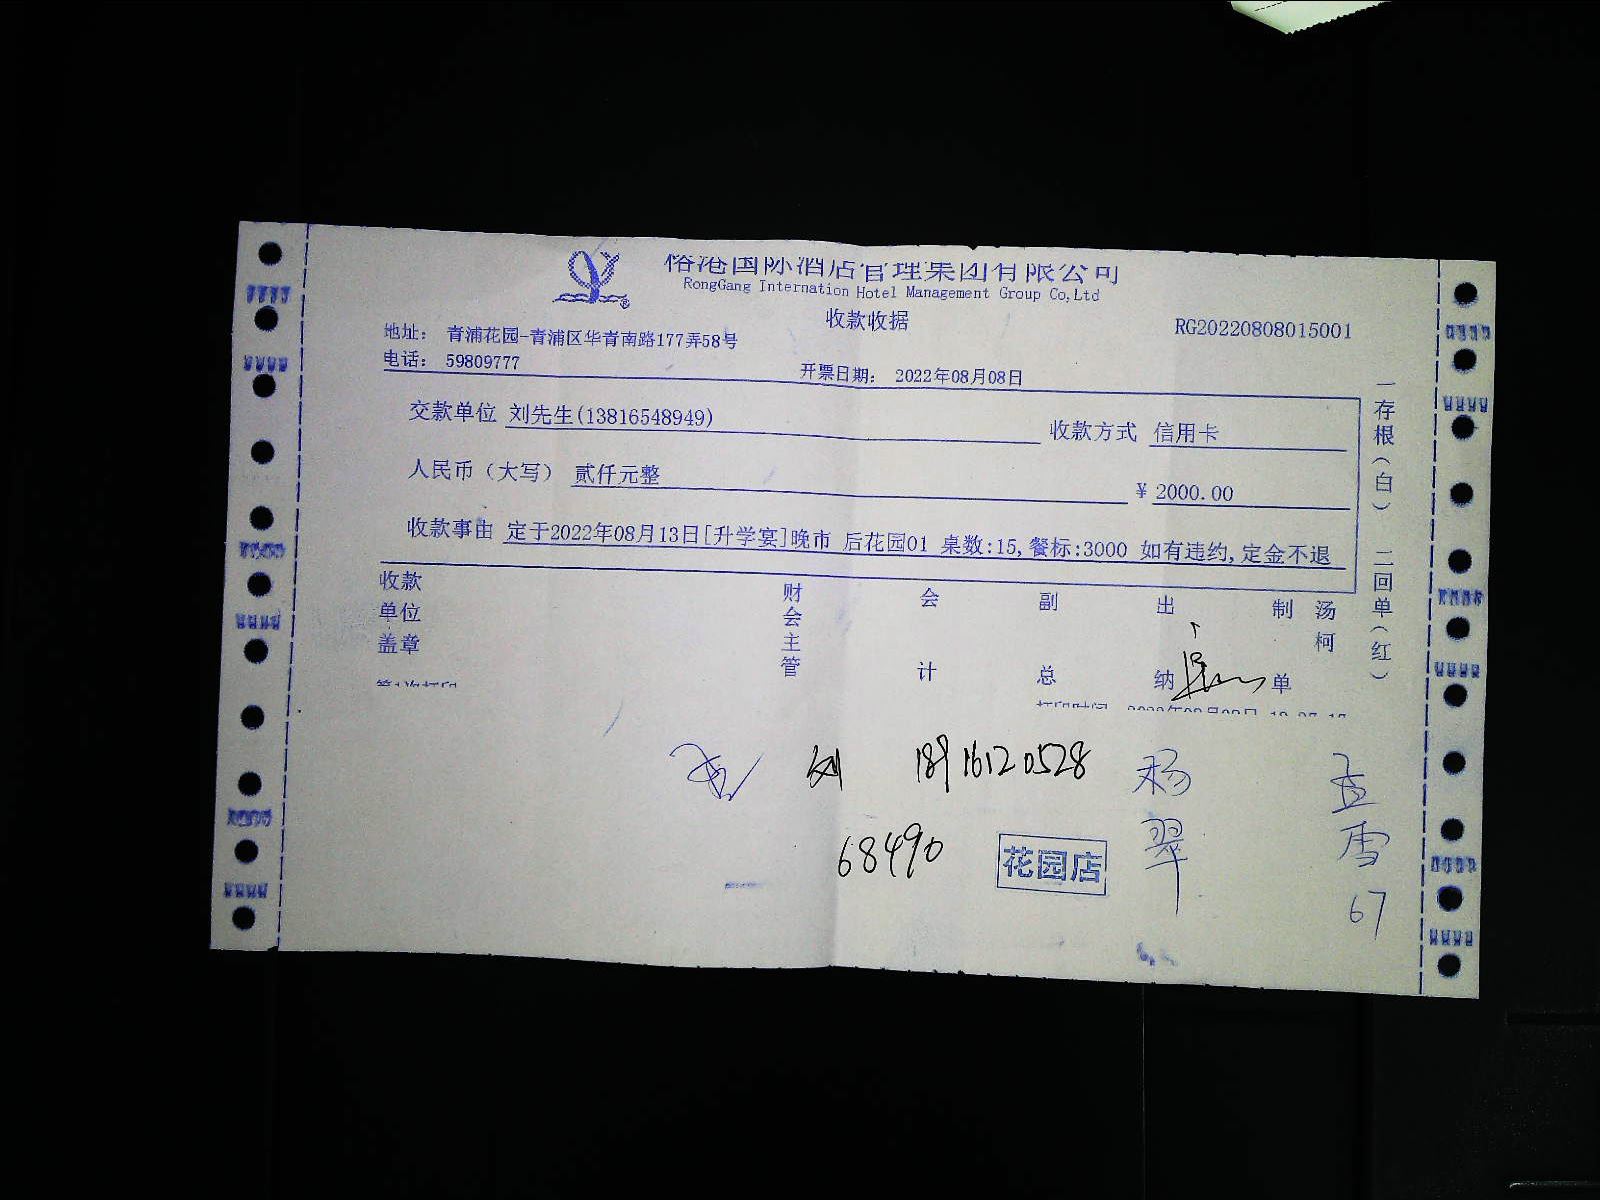 俗港国际酒店管理集团有限公司
RongGang Internation Hotel Management Group Co,Ltd
收款收据
RG20220808015001
地址： 青浦花园-青浦区华青南路177弄58号
电话： 59809777
开票日期： 2022年08月08日
交款单位 刘先生(13816548949)
收款方式 信用卡
人民币（大写） 贰仟元整
¥ 2000.00
收款事由 定于2022年08月13日[升学宴]晚市 后花园01 桌数:15,餐标:3000 如有违约,定金不退
一存根（白） 二回单（红）
收款单位盖章
财会主管
会计
副总
出纳
制单 汤柯
刘 18916120528 杨翠
孟雪 67
68490
花园店